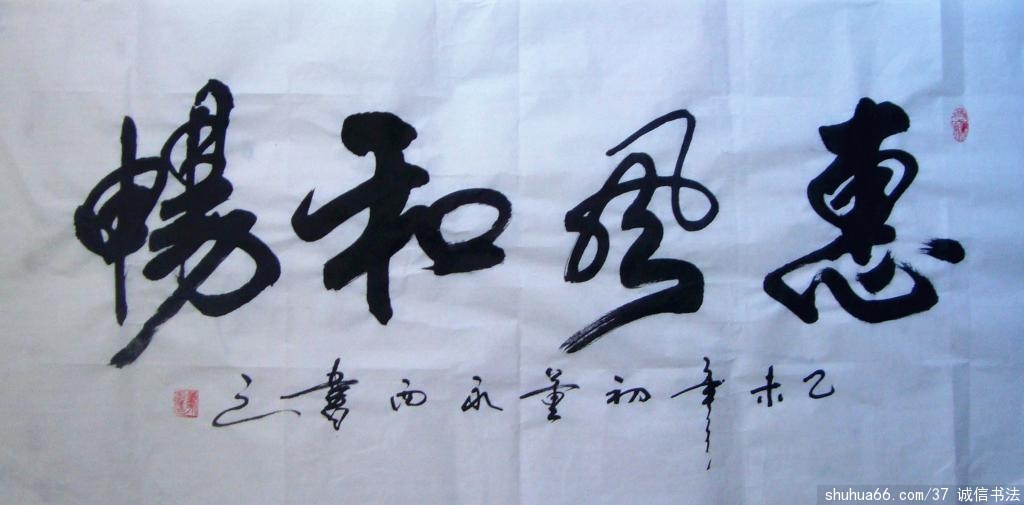 惠風和暢
乙未年初董永西書之
shuhua66.com/37 诚信书法